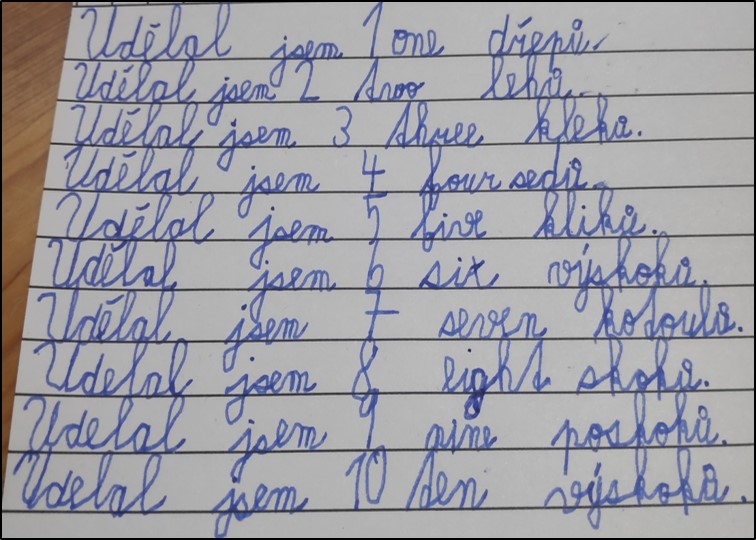 Udělal jsem 1 one dřepů.
Udělal jsem 2 two lehů.
Udělal jsem 3 three kleků.
Udělal jsem 4 four sedů.
Udělal jsem 5 five kliků.
Udělal jsem 6 six výskoků.
Udělal jsem 7 seven kotoulů.
Udelal jsem 8 eight skoků.
Udelal jsem 9 nine poskoků.
Udelal jsem 10 ten výskoků.